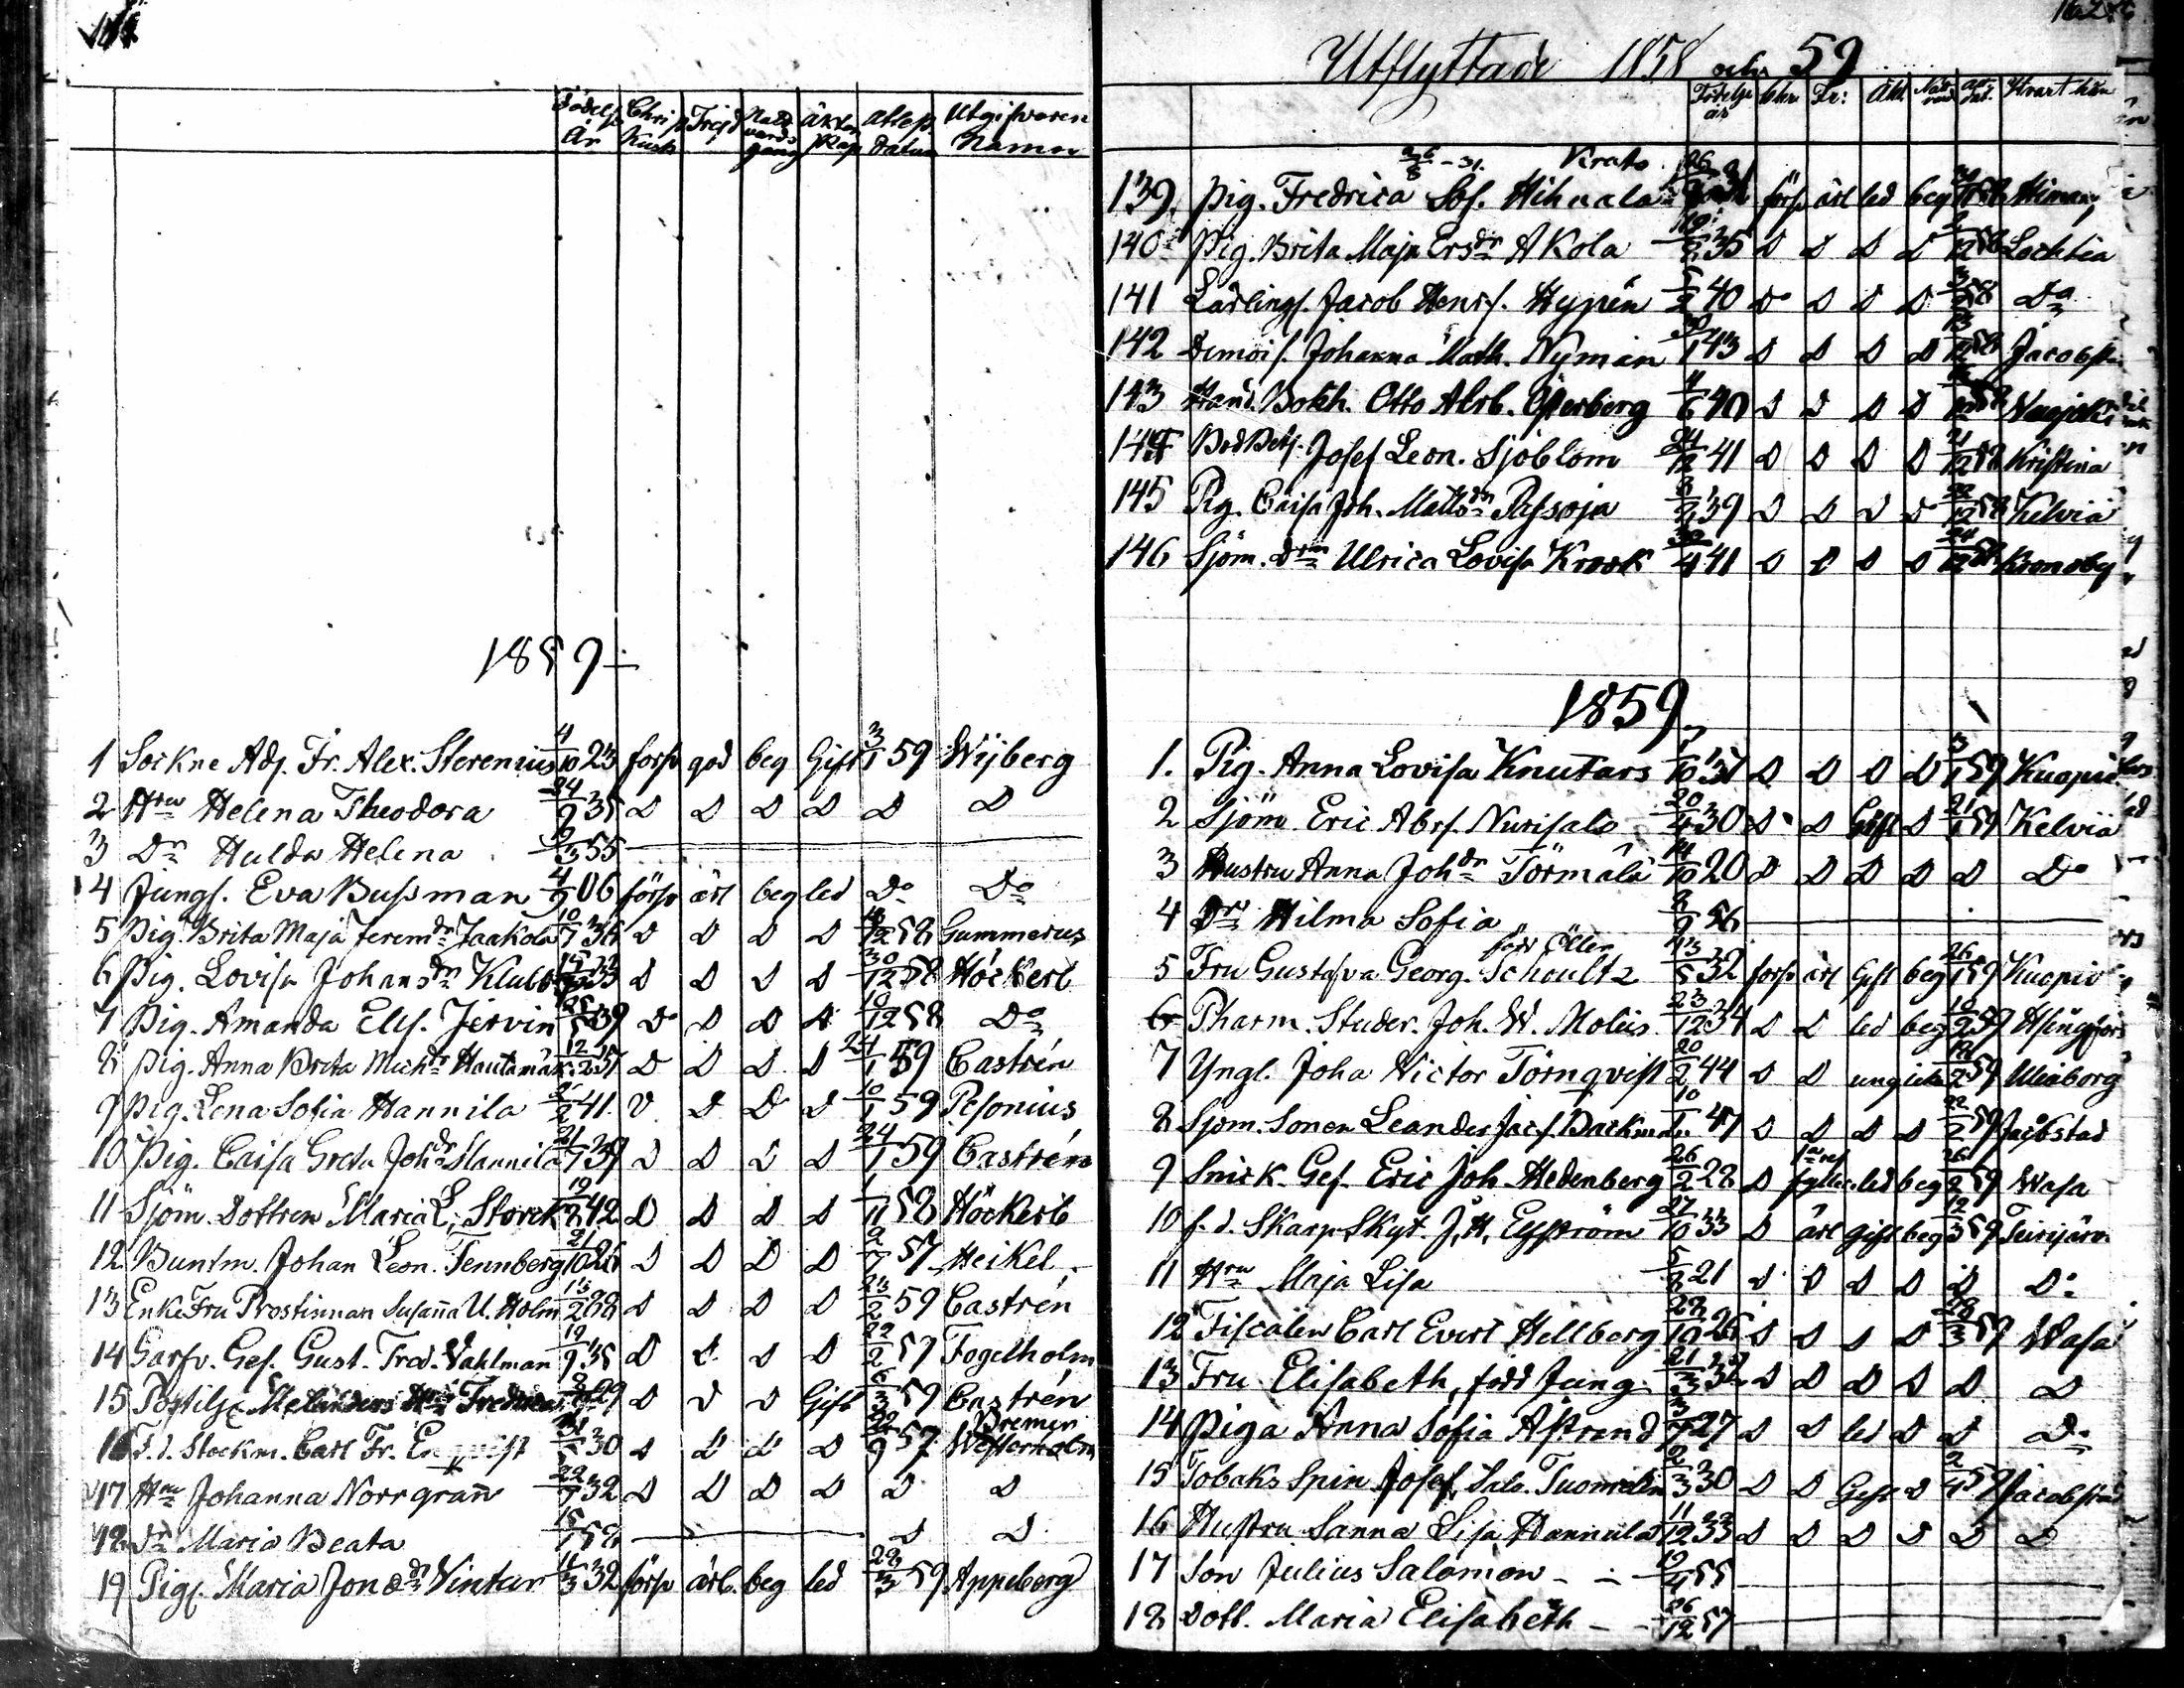 Födelse År Chri Kunsk Frejd Nattvards gang äkten skap attest datum Utgifvaren Namn
1859
1 Sockne Adj. Fr. Alex. Sterenius 4/10 23 försv god beg Gift 3/1 59 Wijberg
2 Hru Helena Theodora 24/9 35 D D D D D D
3 Dr Hulda Helena 19/3 55
4 Jungf. Eva Bussman 4/9 06 försv ärl beg led Do Do
5 Pig. Brita Maja Jeremdr Jaakola 10/7 36 D D D D 18/12 58 Gummerus
6 Pig. Lovisa Johansdr Klubb 33 D D D D 30/12 58 Höckert
7 Pig. Amanda Elis. Jervin 25/5 39 Do D D D 10/12 58 Do
8 Pig. Anna Brita Michdr Hautamäk. 12/2 37 D D D D 24/1 59 Castrén
9 Pig. Lena Sofia Hannila 2/2 41 D D D D 10/1 59 Pesonius
10 Pig. Caisa Greta Johdr Hannila 21/7 39 D D D D 24/1 59 Castrén
11 Sjöm. Dottren Maria L. Storck 19/2 42 D D D D 1/11 58 Höckert
12 Buntm. Johan Leon. Tennberg 21/10 26 D D D D 2/7 57 Heikel
13 EnkeFru Prostinnan Susaña U. Holm 13/2 88 D D D D 23/2 59 Castrén
14 Garfv. Ges. Gust. Fred. Vahlman 19/9 35 D D D D 22/2 59 Fogelholm
15 Postilj. Melanders Hru Fredrica 29 D D D Gift 6/3 59 Castrén
Bremer
16 F.d. Stockm. Carl Fr. Enqvist 31/5 30 D D D D 22/9 57 Westerholm
17 Hru Johanna Norrgrañ 22/7 32 D D D D D D
18 Dr Maria Beata 15/1 58 D D
19 Pig. Maria Jonædr Vintur 11/3 32 försv ärl. beg led 29/3 59 Appelberg
Utflyttade 1858 och 59
Födelse år Chr. Fr: Äkt Natt vard att dat. Hvart hän
26/8 -31. Krats
139. Pig. Fredrica Sof. Hihnala försv ärl led beg 58 Himang
140 Pig. Brita Maja Ersdr Akola 10/2 35 D D D D 2/12 58 Lochtea
141 Lärlingf. Jacob Henrs. Hypén 5/2 40 Do D D D 58 Do
142 Demois. Johanna Math. Nyman 30/1 43 D D D D 13/12 58 Jacobst
143 Hand. Bokh. Otto Abrb. Österberg 4/6 40 D D D D 58
144 BodBetj. Josef Leon. Sjöblom 24/12 41 D D D D 21/12 58 Kristina
145 Pig. Caisa Joh. Mattsdr Passoja 8/2 39 D D D D 22/12 58 Kelviä
146 Sjöm. Drn Ulrica Lovisa Krook 30/4 41 D D D D 24/12 58 Kronoby
1859
1. Pig. Anna Lovisa Knutars 7/10 31 D D D D 3/1 59 Kuopio
2 Sjöm Eric Abrs. Nurisalo 20/4 30 D D Gift D 21/1 59 Kelviä
3 Hustru Anna Johdr Törmälä 14/10 20 D D D D D Do
4 Dr Hilma Sofia 8/9 56
född Öller
5 Fru Gustafva Georg. Schoultz 13/5 32 försv ärl Gift beg 26/1 59 Kuopio
6 Pharm. Studer. Joh. W. Molüs 23/12 34 D D led beg 10/2 59 Hsingfors
7 Yngl. Joha Victor Törnqvist 20/2 44 D D ung icke 2 59 Uleåborg
8 Sjöm. Sonen Leander Jacs. Backman 10/1 47 D D D D 22/2 59 Jacobstad
9 Snick. Ges. Eric Joh. Hedenberg 26/2 28 D fylleri led beg 26/2 59 Wasa
10 f. d. Skarpskyt. J. H. Elfström 27/10 33 D ärl gift beg 12/3 59 Teirijärv.
11 Hru Maja Lisa 5/8 21 D D D D D Do
12 Fiscalen Carl Evert Hellberg 29/10 26 D D D D 28/3 59 Wasa
13 Fru Elisabeth, född Jung 21/3 32 D D D D D D
14 Piga Anna Sofia Åstrand 3/7 27 D D led D D Do
15 Tobaks Spin Josef Salo. Tuomelin 2/3 30 D D Gift D 2/4 59 Jacobstad
16 Hustru Sanna Lisa Hannula 11/12 33 D D D D D D
17 Son Julius Salomon 19/4 55
18 Dott. Maria Elisabeth 26/12 57